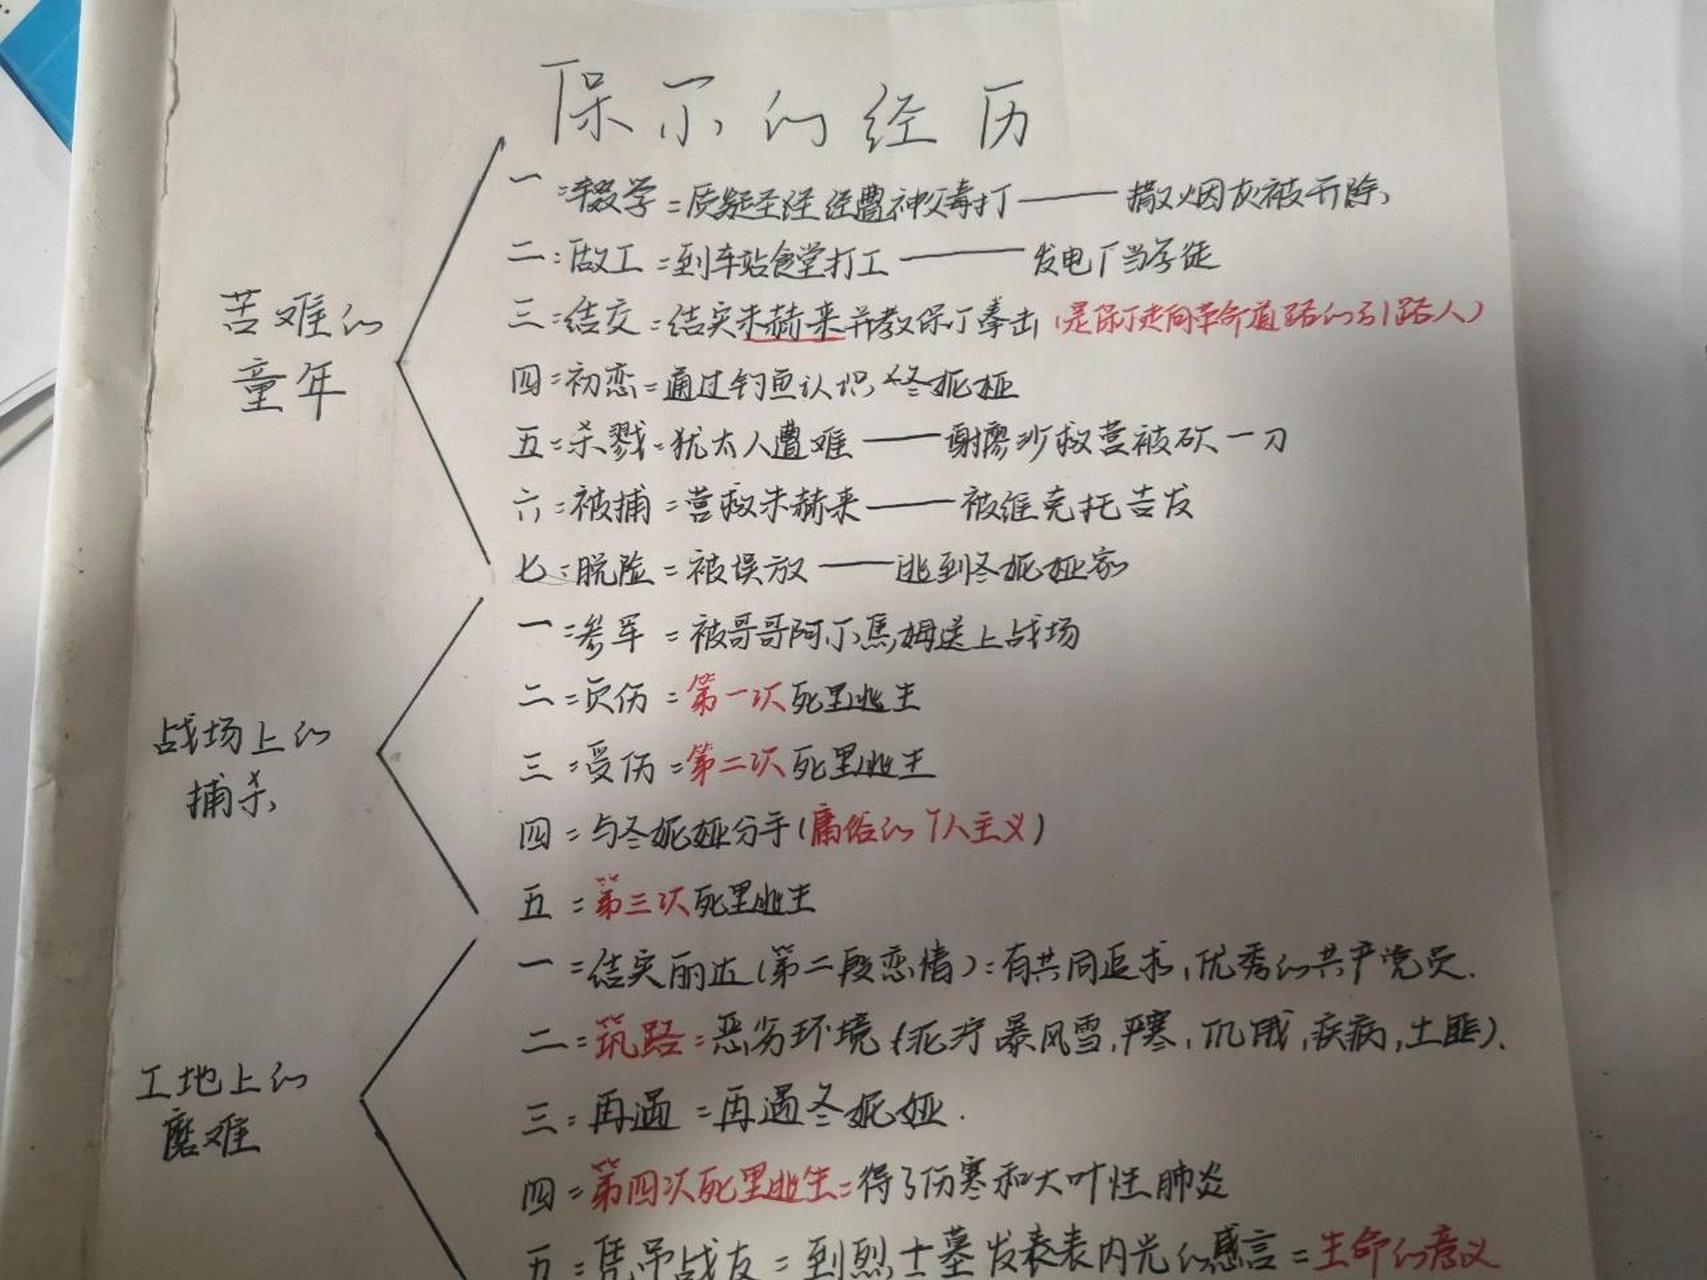 保尔的经历
一:辍学:质疑圣经经曹神父毒打——撒烟灰被开除
二:做工:到车站食堂打工——发电厂当学徒
三:结交:结实朱赫来并教保尔拳击(是保尔走向革命道路的引路人)
苦难的
童年
四:初恋:通过钓鱼认识冬妮娅
五:杀戮:犹太人遭难——谢廖沙救营被砍一刀
六:被捕:营救朱赫来——被维克托告发
七:脱险:被误放——逃到冬妮娅家
一:参军:被哥哥阿尔焦姆送上战场
二:负伤:第一次死里逃生
战场上的
捕杀
三:受伤:第二次死里逃生
四:与冬妮娅分手(庸俗的个人主义)
五:第三次死里逃生
一:结实丽达(第二段恋情):有共同追求,优秀的共产党员.
二:筑路:恶劣环境(泥泞 暴风雪,严寒,饥饿,疾病,土匪).
工地上的
磨难
三:再遇:再遇冬妮娅.
四:第四次死里逃生:得了伤寒和大叶性肺炎
五:凭吊战友:到烈士墓发表表内光的感言:生命的意义